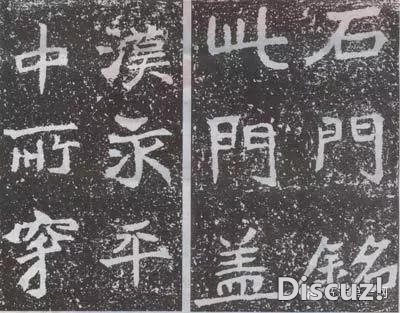 石門銘
此門盖
漢永平
中所穿
Discuz!